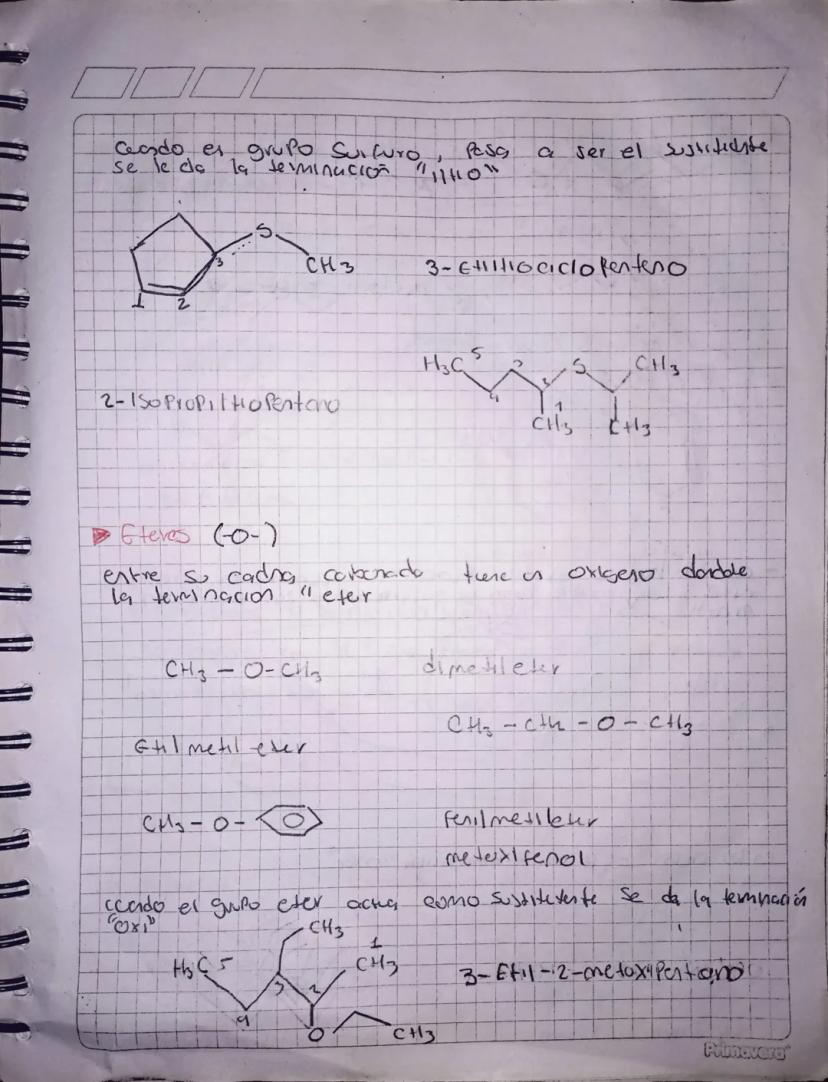 Ceando el grupo Sulfuro, Pasa a ser el sustituente
se le da la terminacion "tiio"
S
3
CH3
1 2
3-Etiltiociclopenteno
H3C 5 2 S CH3
4 3
1
CH3 CH3
2-Isopropiltiopentano
Eteres (-O-)
entre su cadna carbonada tiene un oxigeno dandole
la terminacion "eter
CH3 - O - CH3 dimetileter
CH3 - CH2 - O - CH3
Etilmetil eter
CH3 - O - fenilmetileter
metoxifenol
ccando el grupo eter actua como sustituente se da la terminación
"Oxi"
CH3
1
H3C 5 CH3
3 2
3-Etil-2-metoxipentano
4
O CH3
Primavera